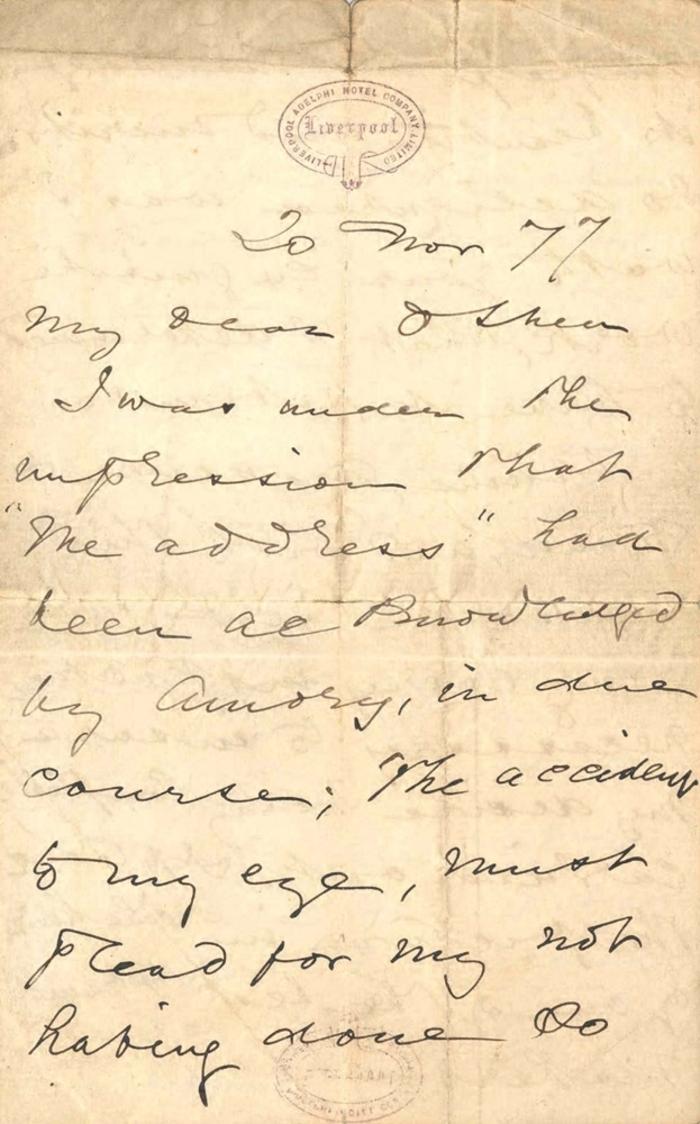 LIVERPOOL ADELPHI HOTEL COMPANY, LIMITED
Liverpool
20 Nov 77
My dear
I was under the
impression that
"The address" had
been acknowledged
by Amory, in due
course; The accident
to my eye, must
plead for my not
having done so